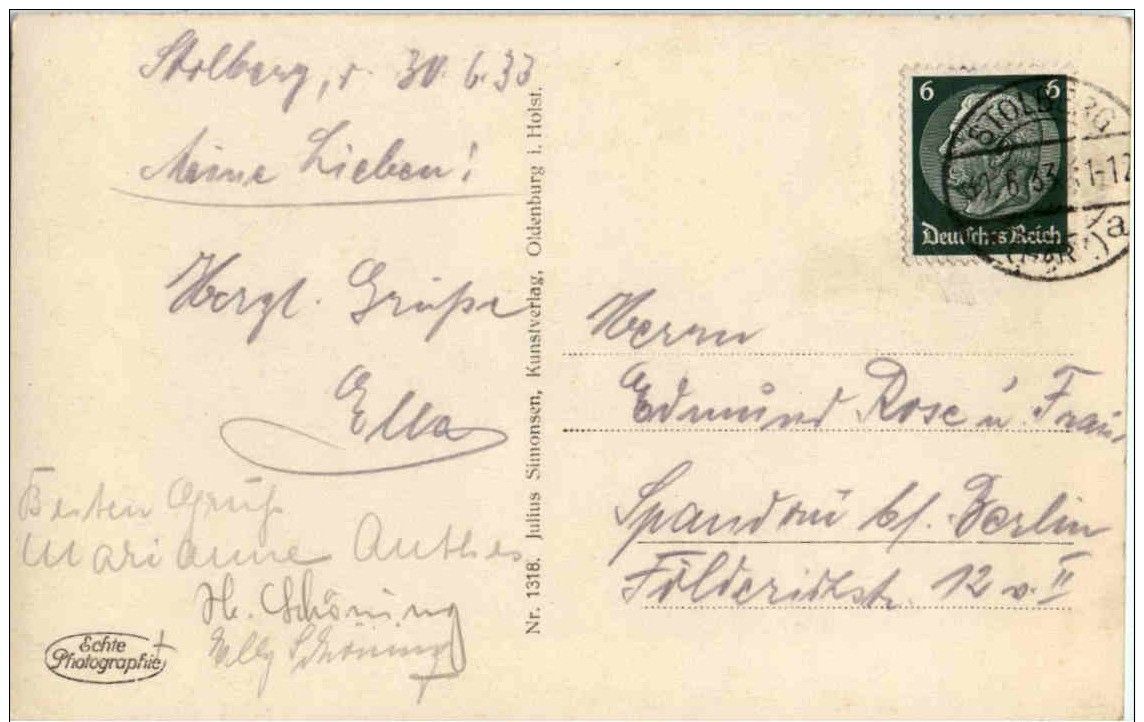 Stolberg, d. 30.6.33
Meine Lieben!
Herzl. Grüße
Ella
Besten Gruß
Marianne Anthes
H. Schöning
Elly Schöning
Echte
Photographie
Nr. 1318. Julius Simonsen, Kunstverlag, Oldenburg i. Holst.
6 6
Deutsches Reich
STOLBERG
6.33 11-12
(Harz) a
Herrn
Edmund Rose u. Frau
Spandau b/. Berlin
Földerichstr. 12 v. II